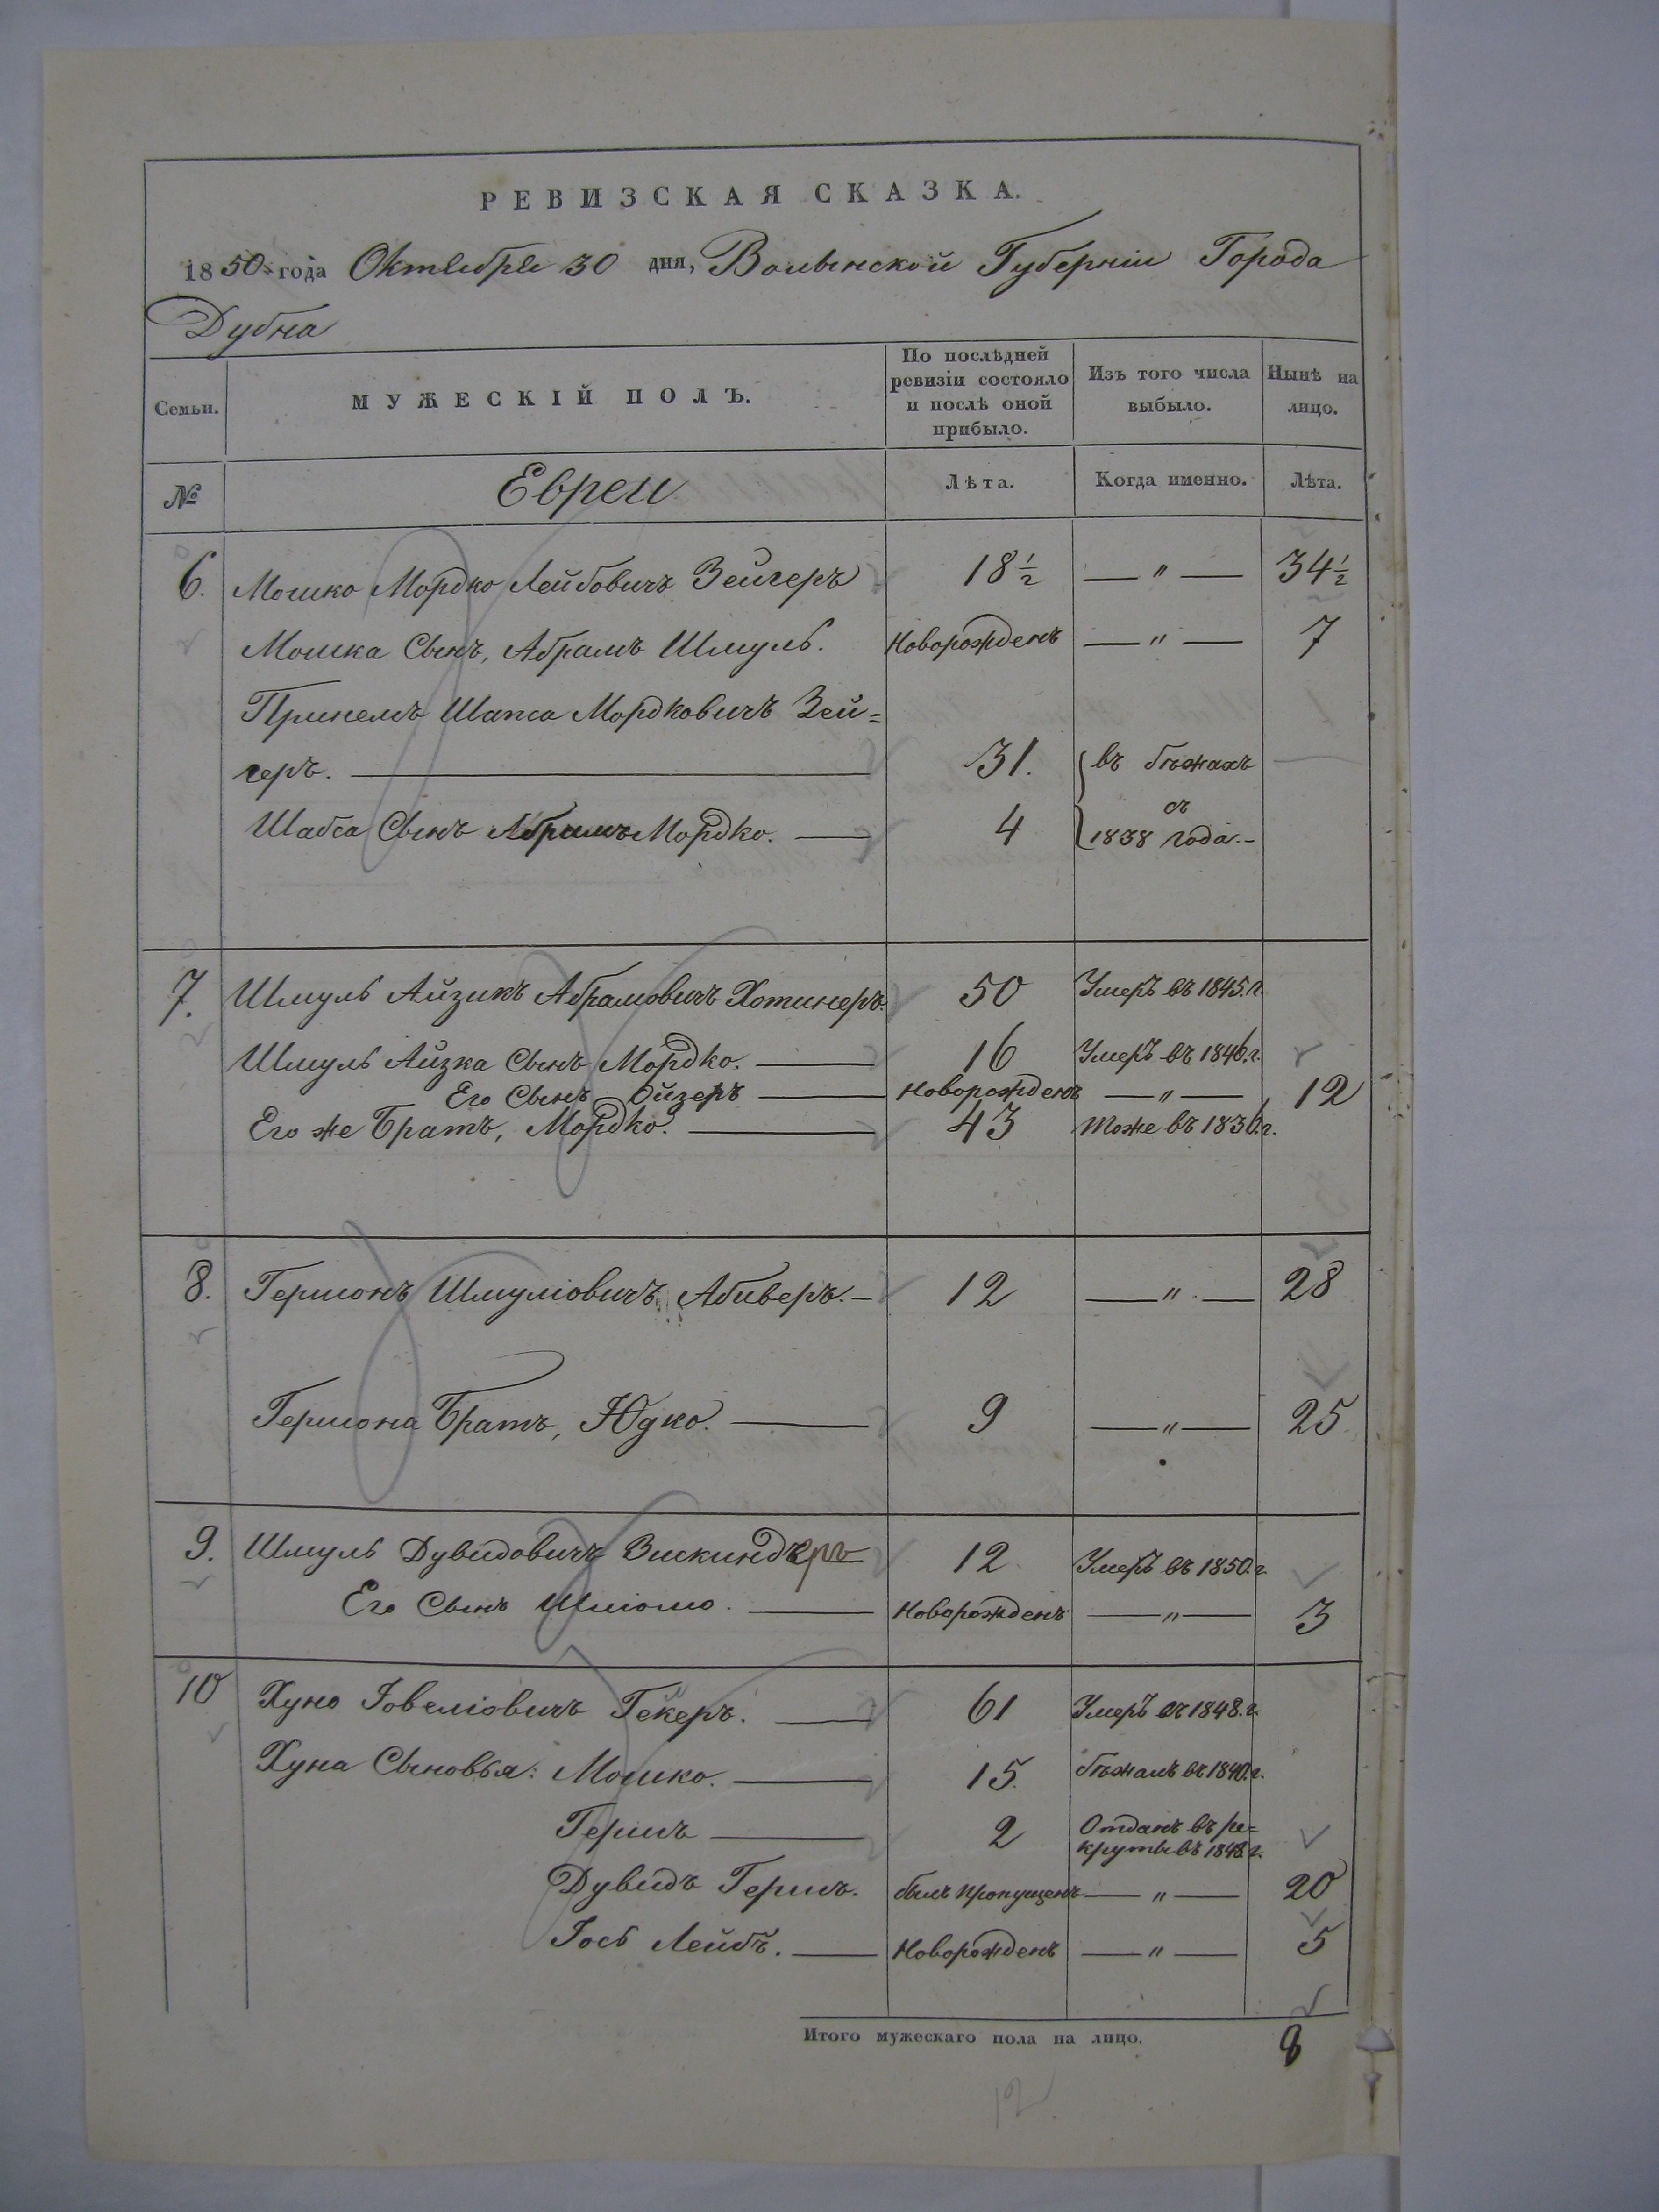 РЕВИЗСКАЯ СКАЗКА.
1850 года Октября 30 дня, Волынской Губерніи Города
Дубна
Семьи. МУЖЕСКІЙ ПОЛЪ. По послѣдней ревизіи состояло и послѣ оной прибыло. Изъ того числа выбыло. Нынѣ на лицо.
№ Евреи Лѣта. Когда именно. Лѣта.
6. Мошко Мордко Лейбовичъ Зейгеръ 18½ — " — 34½
Мошка Сынъ, Абрамъ Шмуль. Новорожденъ — " — 7
Шапса Мордковичъ Зей=
геръ. 31. въ бѣжахъ
съ
Шабса Сынъ Абрамъ Мордко. 4 1838 года.
7. Шмуль Айзикъ Абрамовичъ Хотинеръ. 50 Умеръ въ 1845.г.
Шмуль Айзка Сынъ Мордко. 16 Умеръ въ 1846.г.
Его Сынъ Ойзеръ Новорожденъ — " — 12
Его же Братъ, Мордко. 43 Тоже въ 1836.г.
8. Гершонъ Шмуліовичъ Абиверъ. 12 — " — 28
Гершона Братъ, Юдко. 9 — " — 25
9. Шмуль Дувидовичъ Вискиндеръ 12 Умеръ въ 1850.г.
Его Сынъ Шліомо. Новорожденъ — " — 3
10 Хуно Іовеліовичъ Гекеръ. 61 Умеръ въ 1848.г.
Хуна Сыновья: Мошко. 15. бѣжалъ въ 1840.г.
Гершъ 2 Отданъ въ ре=
круты въ 1848 г.
Дувидъ Гершъ. былъ пропущенъ — " — 20
Іось Лейбъ. Новорожденъ — " — 5
Итого мужескаго пола на лицо. 8
12